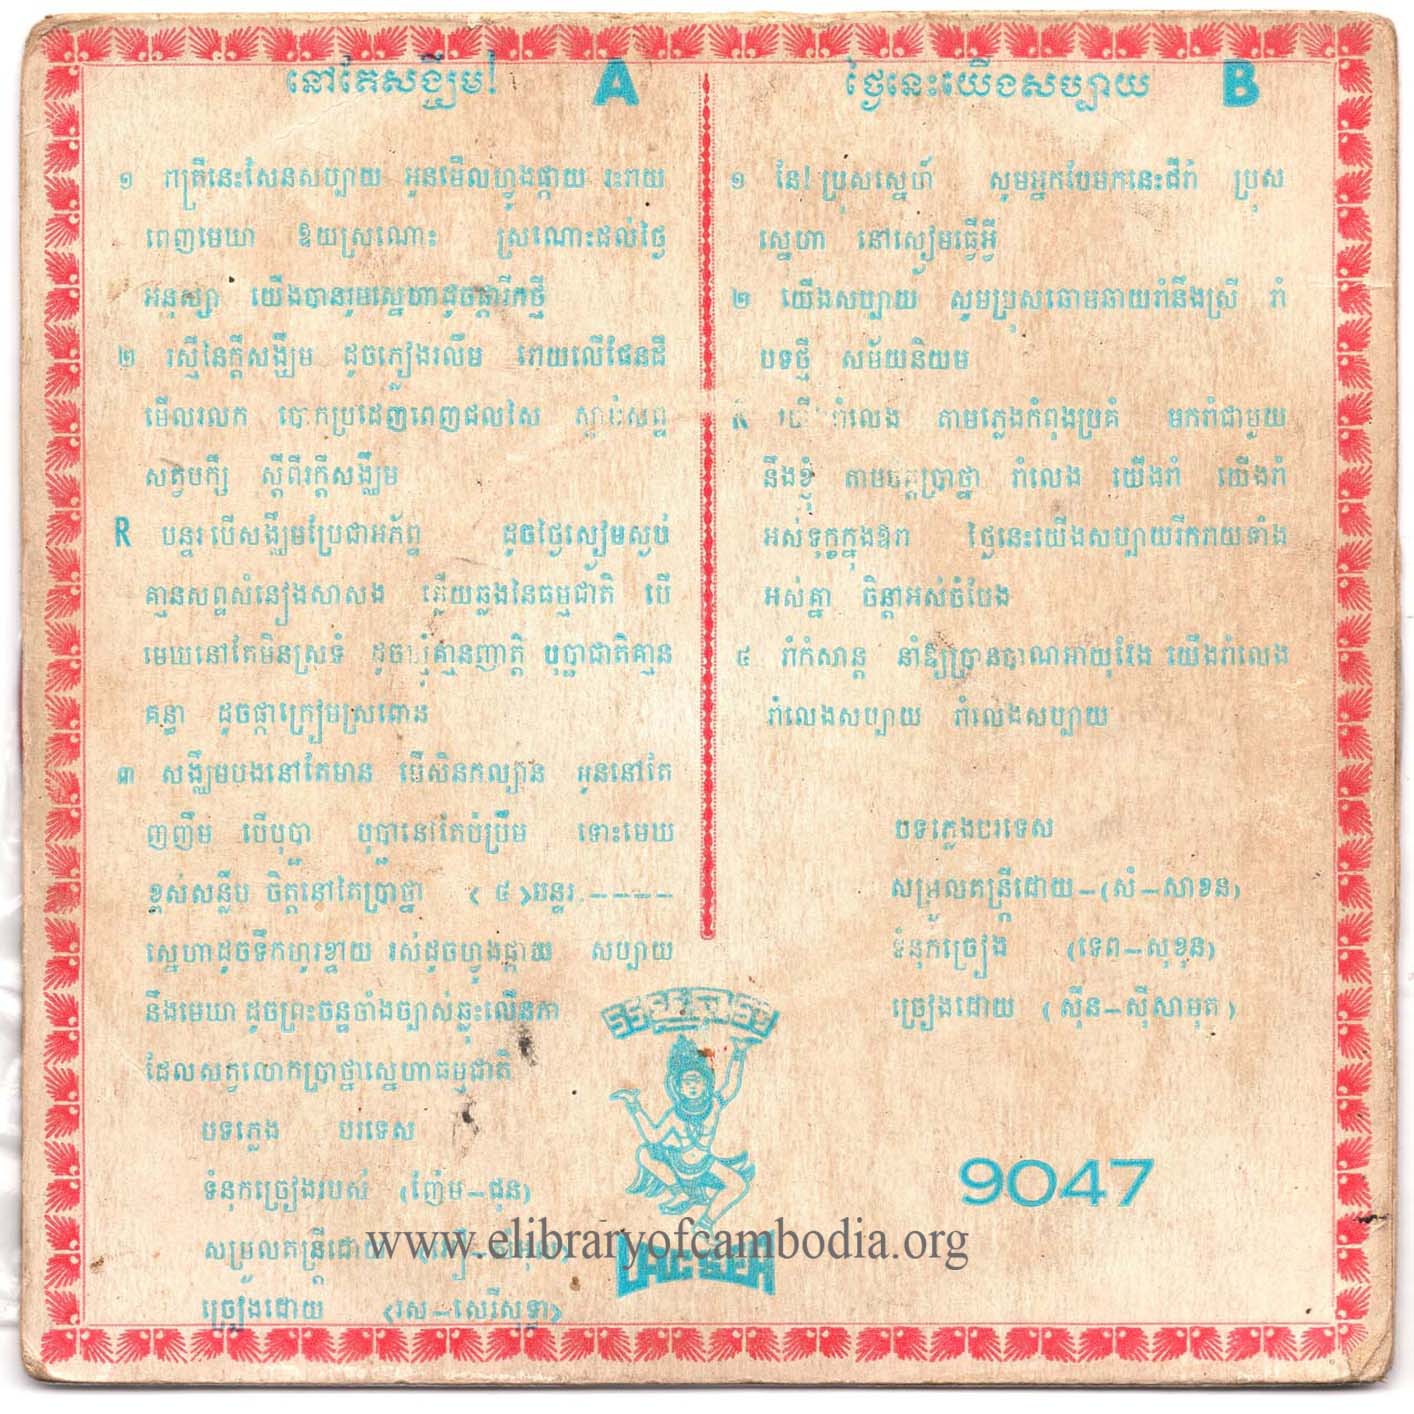 នៅតែសង្ឃឹម! A
១ រាត្រីនេះសែនសប្បាយ អូនមើលហ្វូងផ្កាយ រះរាយ
ពេញមេឃា ឱយស្រណោះ ស្រណោះដល់ថ្ងៃ
អនុស្សា យើងបានរួមស្នេហាដូចផ្ការីកថ្មី
២ រស្មីនៃក្តីសង្ឃឹម ដូចភ្លៀងរលឹម រោយលើផែនដី
មើលរលក បោកប្រដេញពេញជលសៃ ស្តាប់សព្ទ
សត្វបក្សី ស្តីពីរក្តីសង្ឃឹម
R បន្ទរ បើសង្ឃឹមប្រែជាអភ័ព្វ ដូចថ្ងៃស្ងៀមស្ងប់
គ្មានសព្ទសំនៀងសាសង ឆ្លើយឆ្លងនៃធម្មជាតិ បើ
មេឃនៅតែមិនស្រទំ ដូចឃ្មុំគ្មានញាត្តិ បុប្ផាជាតិគ្មាន
គន្ធា ដូចផ្កាក្រៀមស្រពោន
៣ សង្ឃឹមបងនៅតែមាន បើសិនកល្យាន អូននៅតែ
ញញឹម បើបុប្ផា បុប្ផានៅតែប៉ប្រឹម ទោះមេឃ
ខ្ពស់សន្លឹប ចិត្តនៅតែប្រាថ្នា ( ៤ )បន្ទរ.----
ស្នេហាដូចទឹកហូរខ្វាយ រស់ដូចហ្វូងផ្កាយ សប្បាយ
នឹងមេឃា ដូចព្រះចន្ទចាំងច្បាស់ឆ្លុះលើនភា
ដែលសត្វលោកប្រាថ្នាស្នេហាធម្មជាតិ
បទភ្លេង បរទេស
ទំនុកច្រៀងរបស់ (ញ៉ែម-ជុន)
សម្រួលតន្ត្រីដោយ
ច្រៀងដោយ (រស-សេរីសុទ្ធា)
ថ្ងៃនេះយើងសប្បាយ B
១ នែ! ប្រុសស្នេហ៍ សូមអ្នកបែមកនេះដីរាំ ប្រុស
ស្នេហា នៅស្ងៀមធ្វើអ្វី
២ យើងសប្បាយ សូមប្រុសឆោមឆាយរាំនឹងស្រី រាំ
បទថ្មី សម័យនិយម
R យើងរាំលេង តាមភ្លេងកំពុងប្រគំ មករាំជាមួយ
នឹងខ្ញុំ តាមចិត្តប្រាថ្នា រាំលេង យើងរាំ យើងរាំ
អស់ទុក្ខក្នុងឱរា ថ្ងៃនេះយើងសប្បាយរីករាយទាំង
អស់គ្នា ចិន្តាអស់ចំបែង
៤ រាំកំសាន្ត នាំឱ្យប្រានបាណអាយុវែង យើងរាំលេង
រាំលេងសប្បាយ រាំលេងសប្បាយ
បទភ្លេងបរទេស
សម្រួលតន្ត្រីដោយ-(សំ-សាខន)
ទំនុកច្រៀង (ទេព-សុខុន)
ច្រៀងដោយ (ស៊ីន-ស៊ីសាមុត)
9047
www.elibraryofcambodia.org
LAC SEA